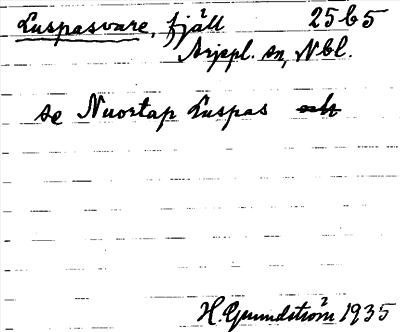 Luspasvare, fjäll 25b5
Arjepl. sn, Nbl.
se Nuortap Luspas
H. Grundström 1935